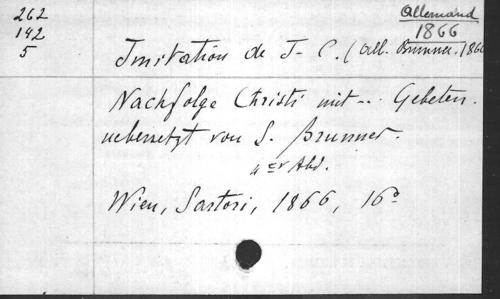 262
142
5
Allemand
1866
Imitation de J-C. (All. Brunner.) 1866
Nachfolge Christi mit -- Gebeten.
uebersetzt von S. Brunner.
4er Abd.
Wien, Sartori, 1866, 16o